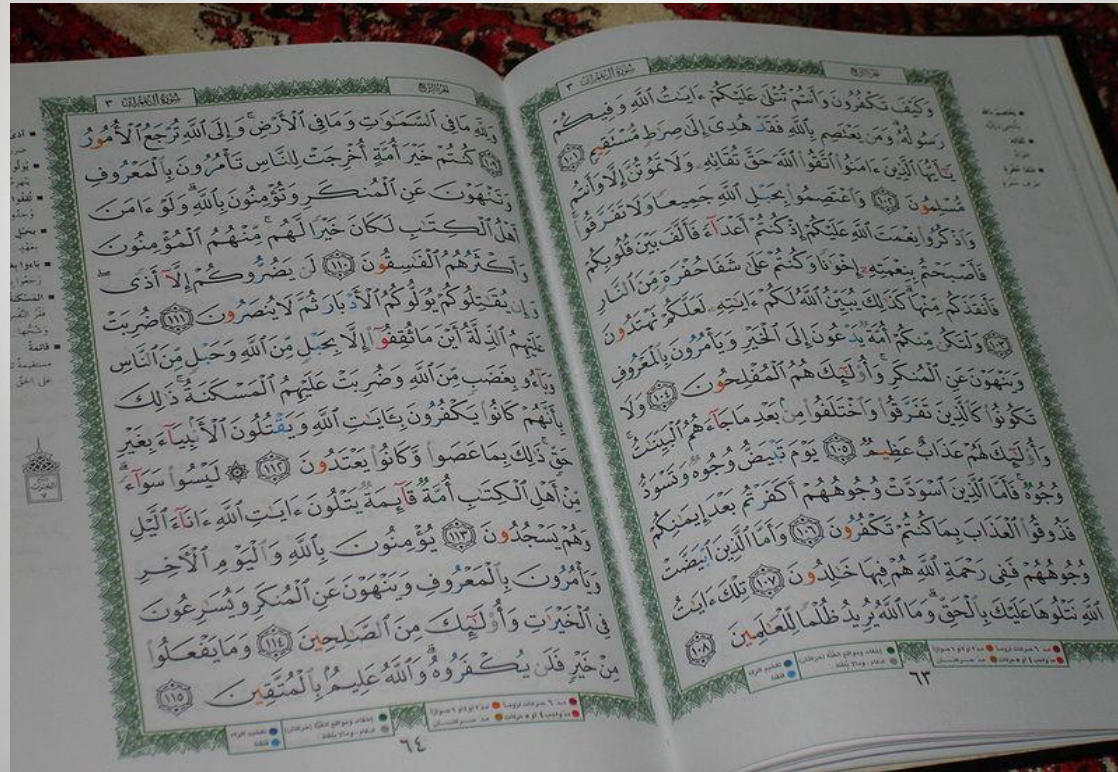 الجزء الرابع
سورة آل عمران ٣
وَكَيْفَ تَكْفُرُونَ وَأَنتُمْ تُتْلَىٰ عَلَيْكُمْ ءَايَٰتُ ٱللَّهِ وَفِيكُمْ
رَسُولُهُۥ وَمَن يَعْتَصِم بِٱللَّهِ فَقَدْ هُدِىَ إِلَىٰ صِرَٰطٍ مُّسْتَقِيمٍ ١٠١
يَٰٓأَيُّهَا ٱلَّذِينَ ءَامَنُوا۟ ٱتَّقُوا۟ ٱللَّهَ حَقَّ تُقَاتِهِۦ وَلَا تَمُوتُنَّ إِلَّا وَأَنتُم
مُّسْلِمُونَ ١٠٢ وَٱعْتَصِمُوا۟ بِحَبْلِ ٱللَّهِ جَمِيعًا وَلَا تَفَرَّقُوا۟
وَٱذْكُرُوا۟ نِعْمَتَ ٱللَّهِ عَلَيْكُمْ إِذْ كُنتُمْ أَعْدَآءً فَأَلَّفَ بَيْنَ قُلُوبِكُمْ
فَأَصْبَحْتُم بِنِعْمَتِهِۦٓ إِخْوَٰنًا وَكُنتُمْ عَلَىٰ شَفَا حُفْرَةٍ مِّنَ ٱلنَّارِ
فَأَنقَذَكُم مِّنْهَا كَذَٰلِكَ يُبَيِّنُ ٱللَّهُ لَكُمْ ءَايَٰتِهِۦ لَعَلَّكُمْ تَهْتَدُونَ
١٠٣ وَلْتَكُن مِّنكُمْ أُمَّةٌ يَدْعُونَ إِلَى ٱلْخَيْرِ وَيَأْمُرُونَ بِٱلْمَعْرُوفِ
وَيَنْهَوْنَ عَنِ ٱلْمُنكَرِ وَأُو۟لَٰٓئِكَ هُمُ ٱلْمُفْلِحُونَ ١٠٤ وَلَا
تَكُونُوا۟ كَٱلَّذِينَ تَفَرَّقُوا۟ وَٱخْتَلَفُوا۟ مِنۢ بَعْدِ مَا جَآءَهُمُ ٱلْبَيِّنَٰتُ
وَأُو۟لَٰٓئِكَ لَهُمْ عَذَابٌ عَظِيمٌ ١٠٥ يَوْمَ تَبْيَضُّ وُجُوهٌ وَتَسْوَدُّ
وُجُوهٌ فَأَمَّا ٱلَّذِينَ ٱسْوَدَّتْ وُجُوهُهُمْ أَكَفَرْتُم بَعْدَ إِيمَٰنِكُمْ
فَذُوقُوا۟ ٱلْعَذَابَ بِمَا كُنتُمْ تَكْفُرُونَ ١٠٦ وَأَمَّا ٱلَّذِينَ ٱبْيَضَّتْ
وُجُوهُهُمْ فَفِى رَحْمَةِ ٱللَّهِ هُمْ فِيهَا خَٰلِدُونَ ١٠٧ تِلْكَ ءَايَٰتُ
ٱللَّهِ نَتْلُوهَا عَلَيْكَ بِٱلْحَقِّ وَمَا ٱللَّهُ يُرِيدُ ظُلْمًا لِّلْعَٰلَمِينَ ١٠٨
٦٣
الجزء الرابع
سورة آل عمران ٣
وَلِلَّهِ مَا فِى ٱلسَّمَٰوَٰتِ وَمَا فِى ٱلْأَرْضِ وَإِلَى ٱللَّهِ تُرْجَعُ ٱلْأُمُورُ
١٠٩ كُنتُمْ خَيْرَ أُمَّةٍ أُخْرِجَتْ لِلنَّاسِ تَأْمُرُونَ بِٱلْمَعْرُوفِ
وَتَنْهَوْنَ عَنِ ٱلْمُنكَرِ وَتُؤْمِنُونَ بِٱللَّهِ وَلَوْ ءَامَنَ
أَهْلُ ٱلْكِتَٰبِ لَكَانَ خَيْرًا لَّهُم مِّنْهُمُ ٱلْمُؤْمِنُونَ
وَأَكْثَرُهُمُ ٱلْفَٰسِقُونَ ١١٠ لَن يَضُرُّوكُمْ إِلَّآ أَذًى
وَإِن يُقَٰتِلُوكُمْ يُوَلُّوكُمُ ٱلْأَدْبَارَ ثُمَّ لَا يُنصَرُونَ ١١١ ضُرِبَتْ
عَلَيْهِمُ ٱلذِّلَّةُ أَيْنَ مَا ثُقِفُوٓا۟ إِلَّا بِحَبْلٍ مِّنَ ٱللَّهِ وَحَبْلٍ مِّنَ ٱلنَّاسِ
وَبَآءُو بِغَضَبٍ مِّنَ ٱللَّهِ وَضُرِبَتْ عَلَيْهِمُ ٱلْمَسْكَنَةُ ذَٰلِكَ
بِأَنَّهُمْ كَانُوا۟ يَكْفُرُونَ بِـَٔايَٰتِ ٱللَّهِ وَيَقْتُلُونَ ٱلْأَنۢبِيَآءَ بِغَيْرِ
حَقٍّ ذَٰلِكَ بِمَا عَصَوا۟ وَّكَانُوا۟ يَعْتَدُونَ ١١٢ ۞ لَيْسُوا۟ سَوَآءً
مِّنْ أَهْلِ ٱلْكِتَٰبِ أُمَّةٌ قَآئِمَةٌ يَتْلُونَ ءَايَٰتِ ٱللَّهِ ءَانَآءَ ٱلَّيْلِ
وَهُمْ يَسْجُدُونَ ١١٣ يُؤْمِنُونَ بِٱللَّهِ وَٱلْيَوْمِ ٱلْءَاخِرِ
وَيَأْمُرُونَ بِٱلْمَعْرُوفِ وَيَنْهَوْنَ عَنِ ٱلْمُنكَرِ وَيُسَٰرِعُونَ
فِى ٱلْخَيْرَٰتِ وَأُو۟لَٰٓئِكَ مِنَ ٱلصَّٰلِحِينَ ١١٤ وَمَا يَفْعَلُوا۟
مِنْ خَيْرٍ فَلَن يُكْفَرُوهُ وَٱللَّهُ عَلِيمٌۢ بِٱلْمُتَّقِينَ ١١٥
٦٤